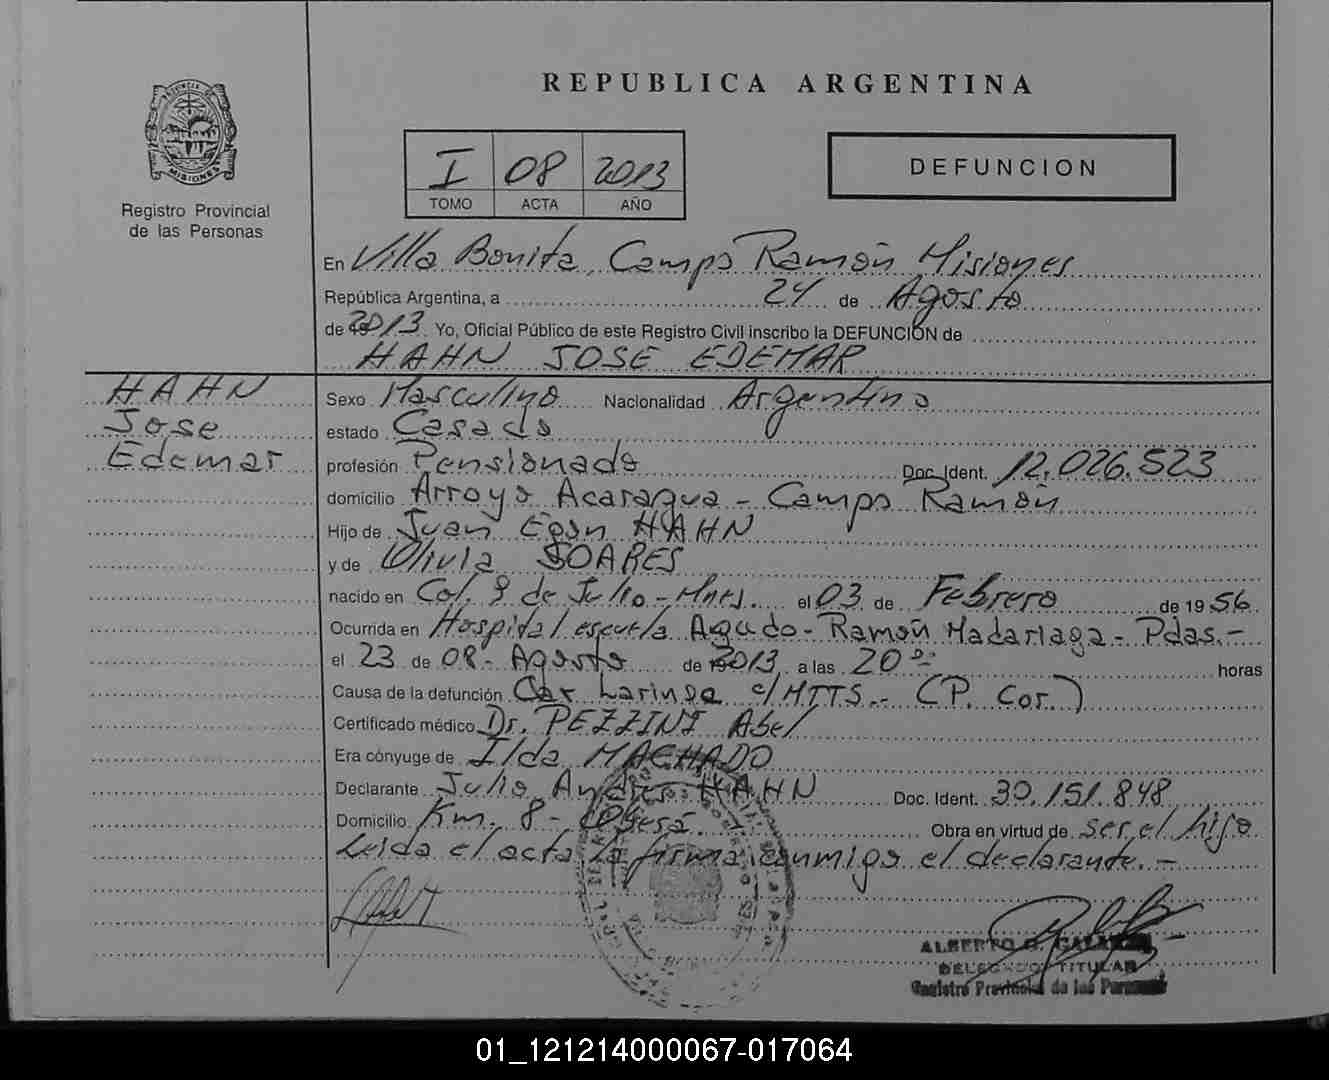 REPUBLICA ARGENTINA
PROVINCIA DE
MISIONES
Registro Provincial
de las Personas
I 08 2013
TOMO ACTA AÑO
DEFUNCION
En Villa Bonita, Campo Ramón Misiones
República Argentina, a 24 de Agosto
de 2013. Yo, Oficial Público de este Registro Civil inscribo la DEFUNCIÓN de
HAHN JOSE EDEMAR
HAHN
Jose
Edemar
Sexo Masculino Nacionalidad Argentino
estado Casado
profesión Pensionado Doc. Ident. 12.026.523
domicilio Arroyo Acaragua - Campo Ramón
Hijo de Juan Egon HAHN
y de Olivia SOARES
nacido en Col. 9 de Julio - Mnes. el 03 de Febrero de 1956.
Ocurrida en Hospital escuela Agudo - Ramón Madariaga - Pdas. -
el 23 de 08 - Agosto de 2013 a las 20 horas
Causa de la defunción Car Laringe c/ MTTS.- (P. Cor.)
Certificado médico Dr. PEZZINI Abel
Era cónyuge de Ilda MACHADO
Declarante Julio Andres HAHN Doc. Ident. 30.151.848
Domicilio Km. 8 - Oberá Obra en virtud de ser el hijo
Leida el acta la firma conmigo el declarante. -
ALBERTO
DELEGADO TITULAR
Registro Provincial de las Personas
01_121214000067-017064